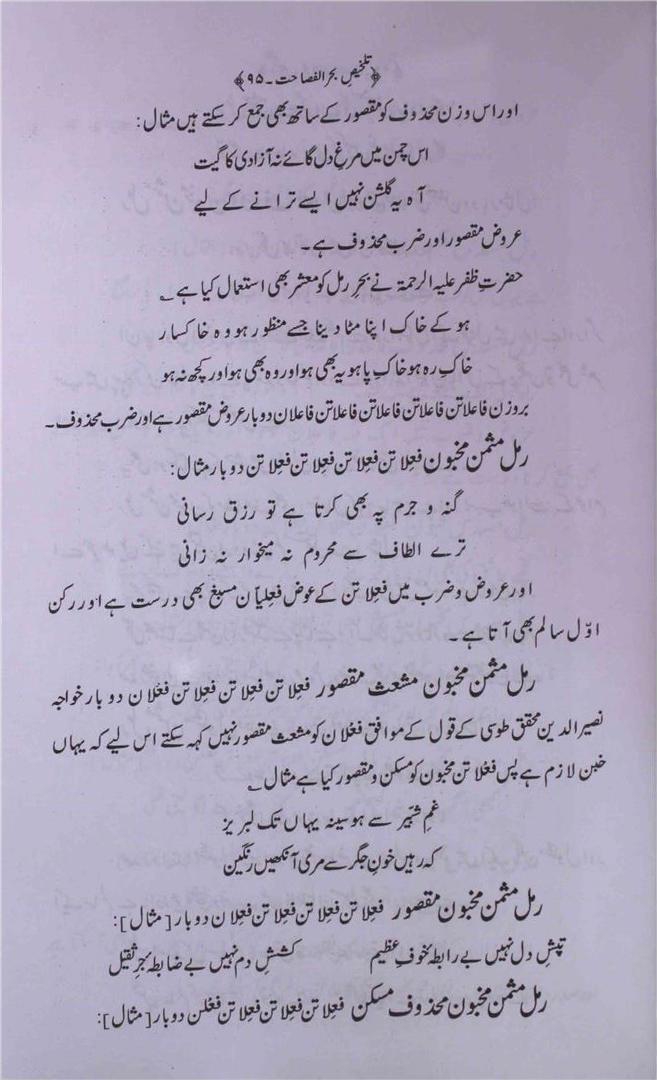 ﴿تلخیصِ بحر الفصاحت۔۹۵﴾
اور اس وزن محذوف کو مقصور کے ساتھ بھی جمع کر سکتے ہیں مثال:
اس چمن میں مرغِ دل گائے نہ آزادی کا گیت
آہ یہ گلشن نہیں ایسے ترانے کے لیے
عروض مقصور اور ضرب محذوف ہے۔
حضرتِ ظفر علیہ الرحمۃ نے بحرِ رمل کو معشر بھی استعمال کیا ہے ؎
ہو کے خاک اپنا مٹا دینا جسے منظور ہو وہ خاکسار
خاکِ رہ ہو خاکِ پا ہو یہ بھی ہو اور وہ بھی ہو اور کچھ نہ ہو
بروزن فاعلاتن فاعلاتن فاعلاتن فاعلاتن فاعلان دوبار عروض مقصور ہے اور ضرب محذوف۔
رمل مثمن مخبون فعِلاتن فعِلاتن فعِلاتن فعِلاتن دوبار مثال:
گنہ و جرم پہ بھی کرتا ہے تو رزق رسانی
ترے الطاف سے محروم نہ میخوار نہ زانی
اور عروض و ضرب میں فعلاتن کے عوض فعِلیاّن مسبغ بھی درست ہے اور رکن
اوّل سالم بھی آتا ہے۔
رمل مثمن مخبون مشعث مقصور فعِلاتن فعِلاتن فعِلاتن فعْلان دوبار خواجہ
نصیر الدین محقق طوسی کے قول کے موافق فعْلان کو مشعث مقصور نہیں کہہ سکتے اس لیے کہ یہاں
خبن لازم ہے پس فعْلاتن مخبون کو مسکن و مقصور کیا ہے مثال ؎
غمِ شبّیر سے ہو سینہ یہاں تک لبریز
کہ رہیں خونِ جگر سے مری آنکھیں رنگین
رمل مثمن مخبون مقصور فعِلاتن فعِلاتن فعِلاتن فعِلان دوبار [مثال]:
تپشِ دل نہیں بے رابطۂ خوفِ عظیم کششِ دم نہیں بے ضابطۂ جرِّ ثقیل
رمل مثمن مخبون محذوف مسکن فعِلاتن فعِلاتن فعِلاتن فعْلن دوبار [مثال]: